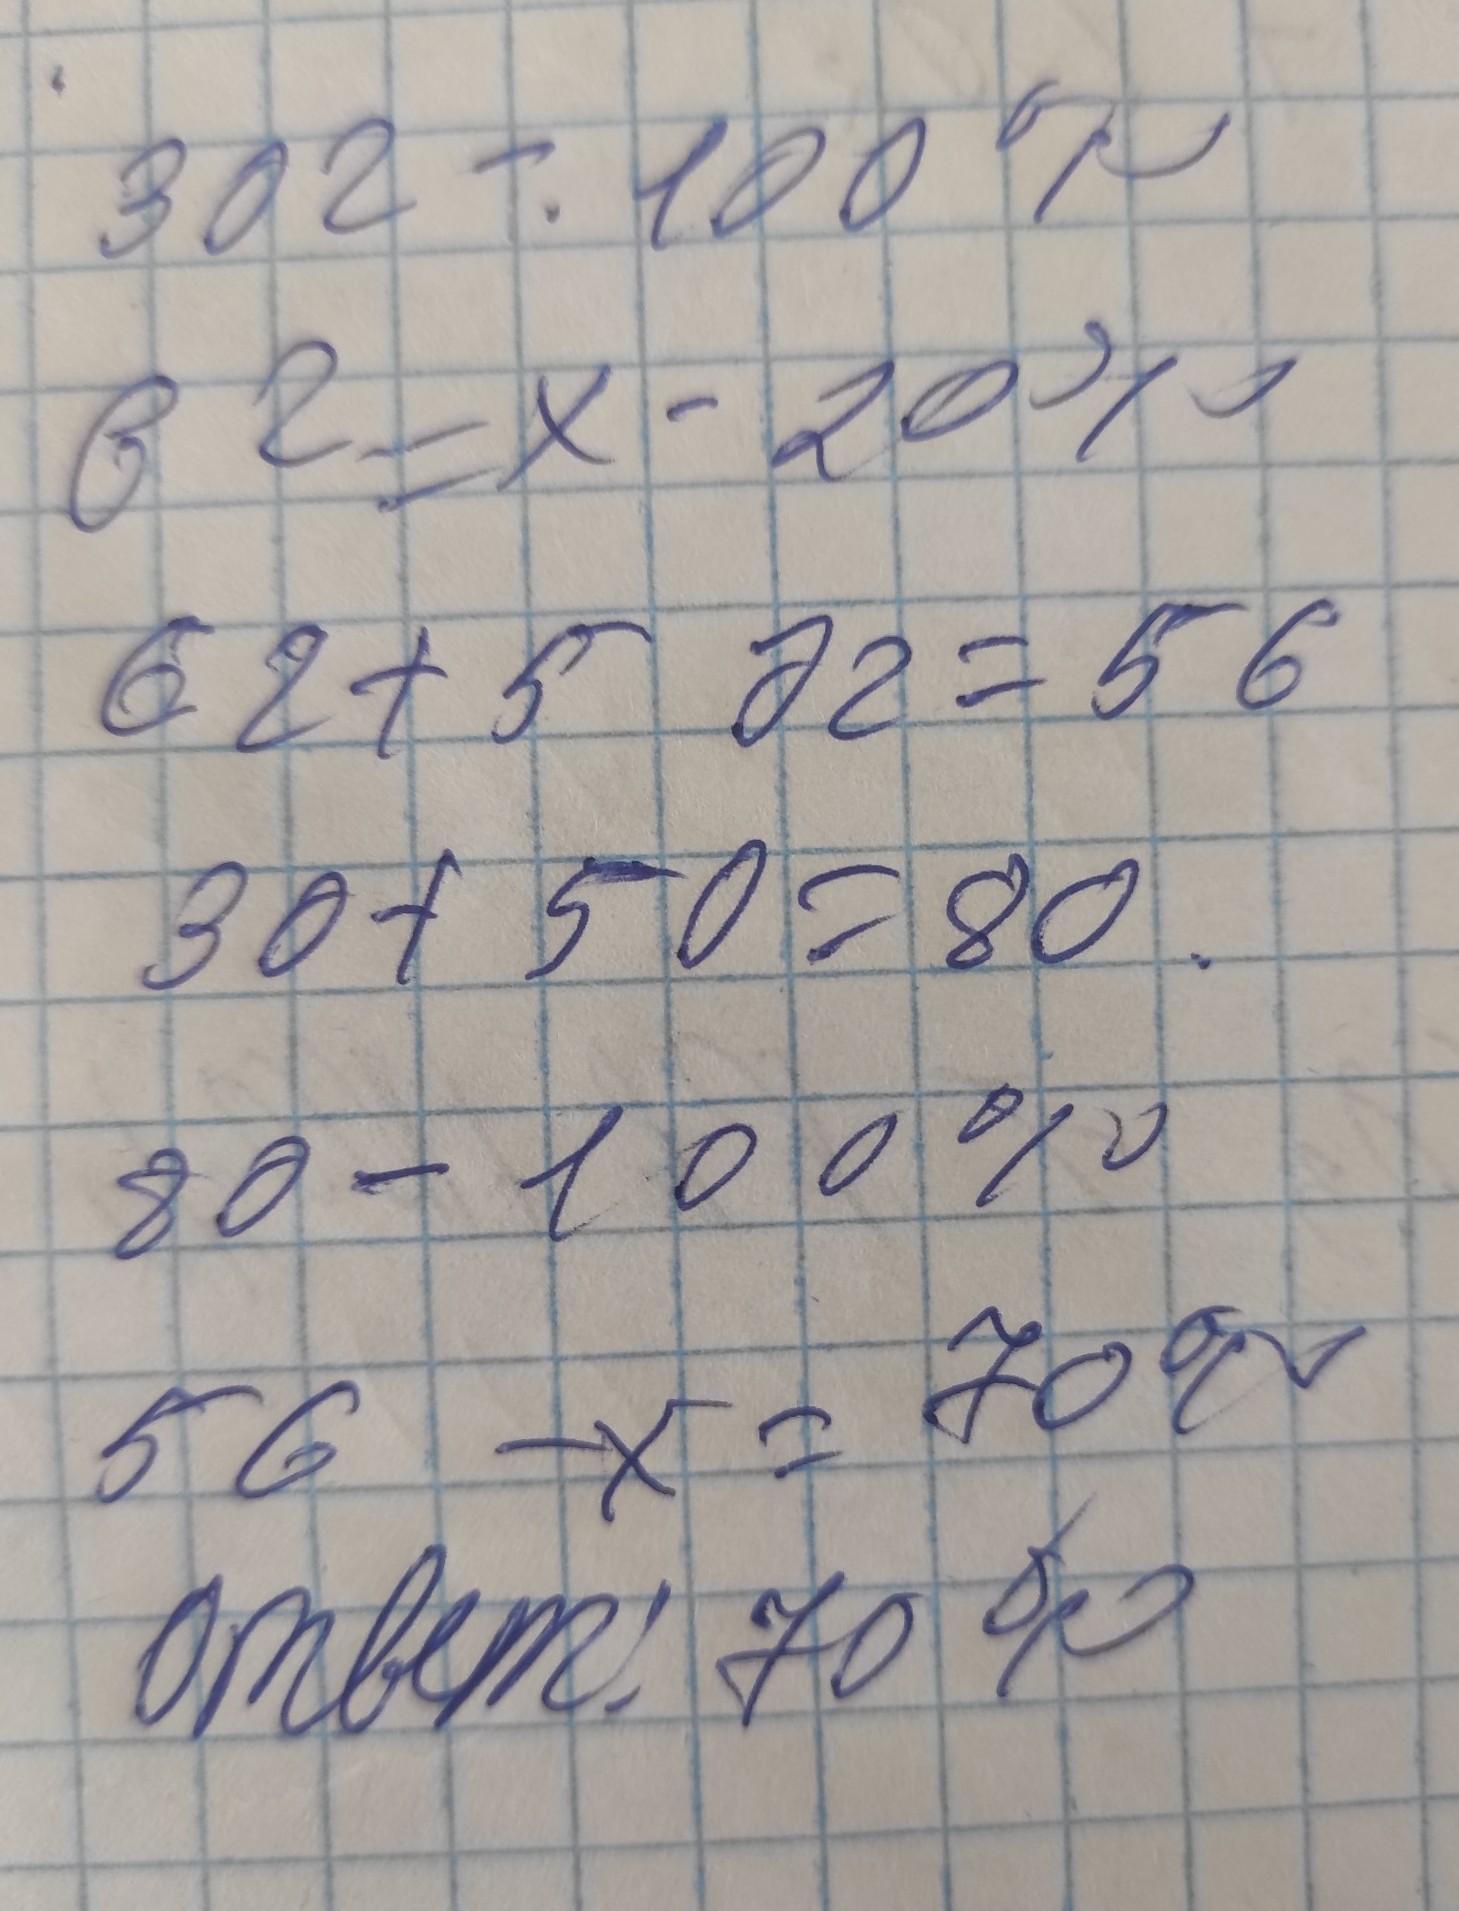 30г - 100%
6г = х - 20%
6г + 50г = 56
30 + 50 = 80.
80 - 100%
56 - х = 70%
Ответ: 70%